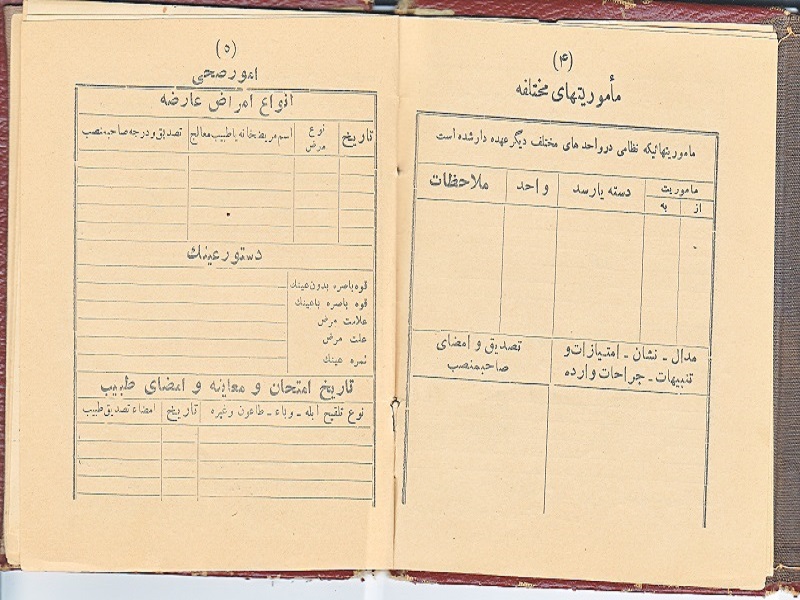 (۴)
مأموریتهای مختلفه
ماموریتهائیکه نظامی درواحد های مختلف دیگر عهده دار شده است
ماموریت
از
به
دسته یا رسد
واحد
ملاحظات
مدال ـ نشان ـ امتیازات و
تنبیهات ـ جراحات وارده
تصدیق و امضای
صاحبمنصب
(۵)
امور صحی
انواع امراض عارضه
تاریخ
نوع
مرض
اسم مریضخانه یا طبیب معالج
تصدیق و درجه صاحبمنصب
دستور عینك
قوه باصره بدون عینك
قوه باصره باعینك
علامت مرض
علت مرض
نمره عینك
تاریخ امتحان و معاینه و امضای طبیب
نوع تلقیح آبله ـ وباء ـ طاعون و غیره
تاریخ
امضاء تصدیق طبیب